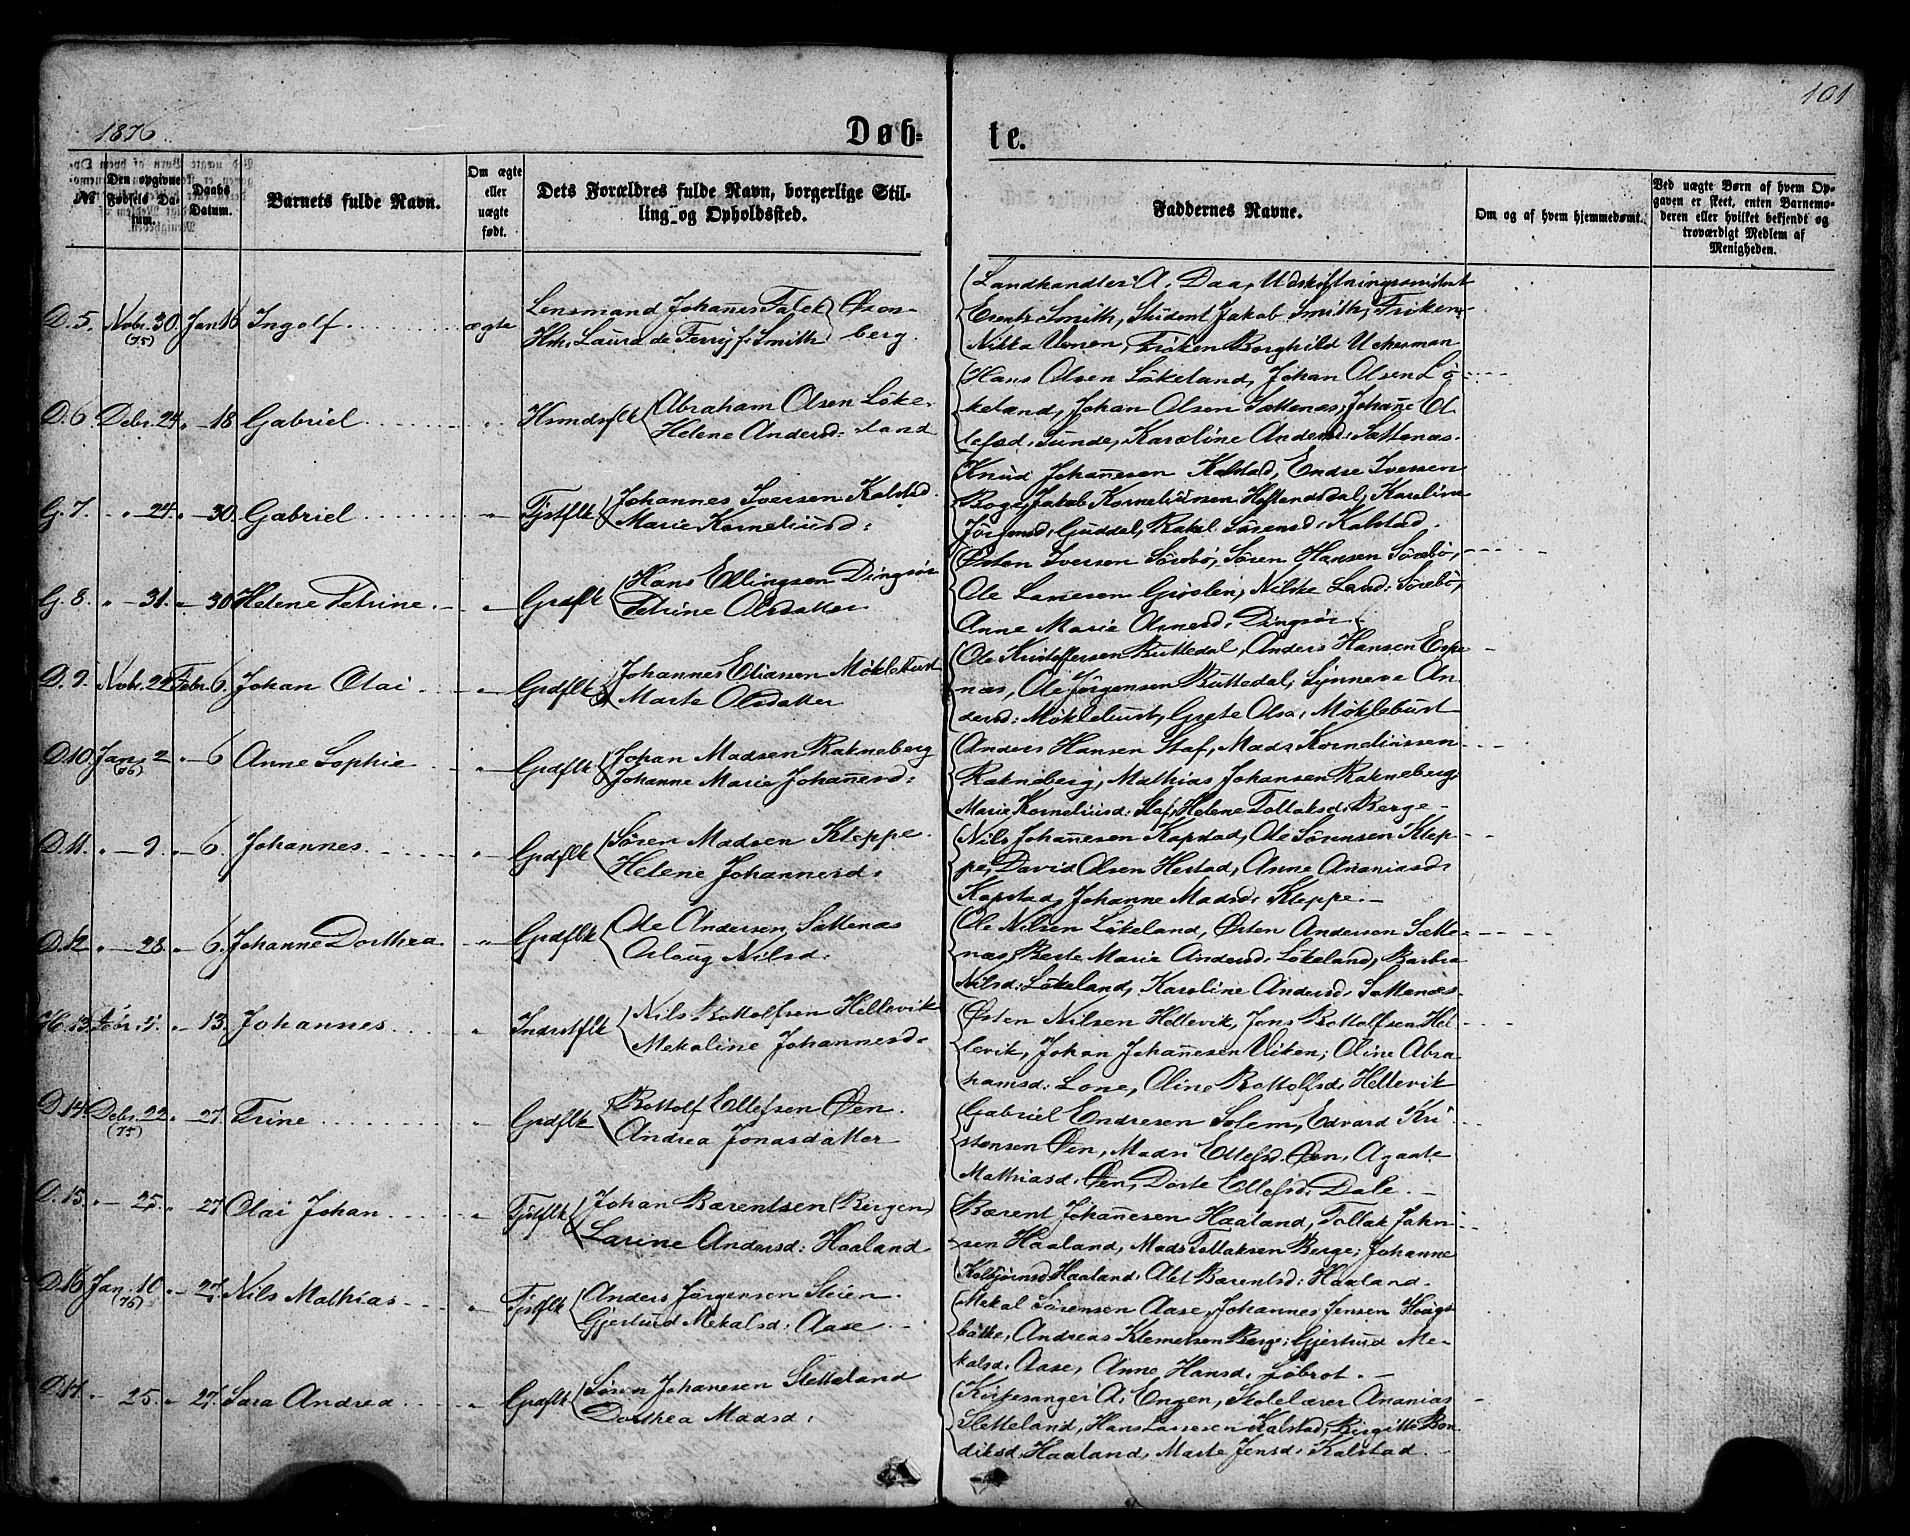 1876.
Døb-
te.
101
№
Den opgivne Fødsels Datum.
Daabs Datum.
Barnets fulde Navn.
Om ægte eller uægte født.
Dets Forældres fulde Navn, borgerlige Stilling og Opholdsfted.
Faddernes Navne.
Om og af hvem hjemmedøbt.
Ved uægte Børn af hvem Opgaven er skeet, enten Barnemoderen eller hvilket bekjendt og troværdigt Medlem af Menigheden.
D. 5. Novbr. 30. (75) Jan 16 Ingolf. ægte
Lensmand Johanes Falck
H. Laura de Ferry f. Smith
Øxen-
berg.
Landhandler A. Daa,
Smith, Student Jakob Smith, Frøken
Frøken Borghild Ucherman
D. 6. Debr. 24. " 18 Gabriel "
Hsmdsflk Abraham Olsen Løke-
Helene Andersd: land
Hans Olsen Løkeland, Johan Olsen Lø-
keland, Johan Olsen Sættenæs, Johañe El-
lefsd. Sunde, Karoline Andersd. Sættenæs.
G. 7. " 24. " 30. Gabriel "
Fjstflk Johannes Iversen Kalstad.
Marie Korneliusd:
Knud Johañesen Kalstad, Endre Iversen
Boge, Jakob Korneliussen Hestandsdal, Karoline
Jørgensd. Guddal, Rakel Sørensd. Kalstad.
G. 8. " 31. " 30 Helene Petrine "
Grdflk Hans Ellingsen Dingsør
Petrine Olsdatter
Østen Iversen Sørebø, Søren Hansen Sørebø,
Ole Lassesen
Anne Marie Dingsør
D. 9. Novbr. 22 Febr. 6. Johan Olai "
Grdflk Johannes Eliassen Møklebust
Marte Olsdatter
Ole Kristoffersen Buttedal, Anders Hansen Espe-
næs, Ole Jørgensen Buttedal, Synneve An-
dersd: Møklebust, Grete Olsd. Møklebust
D. 10. Jan. 2 (76) " 6 Anne Sophie "
Grdflk Johan Madsen Rakneberg
Johanne Marie Johañesd:
Anders Hansen Staf, Mads Korneliussen
Rakneberg, Mathias Johansen Rakneberg,
Marie Korneliusd: Staf, Helene Tollaksd. Berge
D. 11. " 9. " 6. Johannes "
Grdflk Søren Madsen Kleppe.
Helene Johannesd:
Nils Johañesen Kapstad, Ole Sørensen Klep-
pe, David Olsen Hestad, Anne Ananiasd:
Kapstad, Johanne Madsd: Kleppe.
D. 12 " 28 " 6. Johanne Dorthea "
Grdflk Ole Andersen Sættenæs
Aslaug Nilsd:
Ole Nilsen Løkeland, Østen Andersen Sætte-
næs, Berte Marie Andersd: Løkeland, Barbra
Nilsd: Løkeland, Karoline Andersd. Sættenæs
H. 13. Febr. " 13. Johannes "
Indrstflk Nils Bottolfsen Hellevik
Mekaline Johannesd:
Østen Nilsen Hellevik, Jens Bottolfsen Hel-
levik, Johan Johañesen Viken, Oline Abra-
hamsd: Lone, Oline Bottolfsd. Hellevik
D. 14. Debr. 22 (75) " 27. Trine "
Grdflk Bottolf Ellefsen Øen.
Andrea Jonasdatter
Gabriel Endresen Solem, Edvard Kri-
stensen Øen, Mads Ellefsd. Øen, Agaate
Mathiasd. Øen, Dorte Ellefsd. Dale.
D. 15. " 25. " 27 Olai Johan "
Fjstflk Johan Bærentsen (Bergen)
Larine Andersd: Haaland
Bærent Johañesen Haaland, Tollak John-
sen Haaland, Mads Tollaksen Berge, Johanne
Kolbjørnsd. Haaland, Alet Bærentsd: Haaland.
D. 16 Jan. 10 (76) " 27. Nils Mathias "
Fjstflk Anders Jørgensen Steien.
Gjertrud Mekalsd: Aase
Mekal Sørensen Aase, Johannes Jensen Haugs-
bøtte, Andreas Klemetsen Berge, Gjertrud Me-
kalsd. Aase, Anne Hansd.
D. 17. " 25. " 27. Sara Andrea "
Grdflk Søren Johanesen Sletteland
Dorthea Madsd:
Kirkesanger A. Engen, Skolelærer Ananias
Sletteland, Hans Lassesen Kalstad, Birgitte Ben-
diksd. Haaland, Marte Jensd. Kalstad.